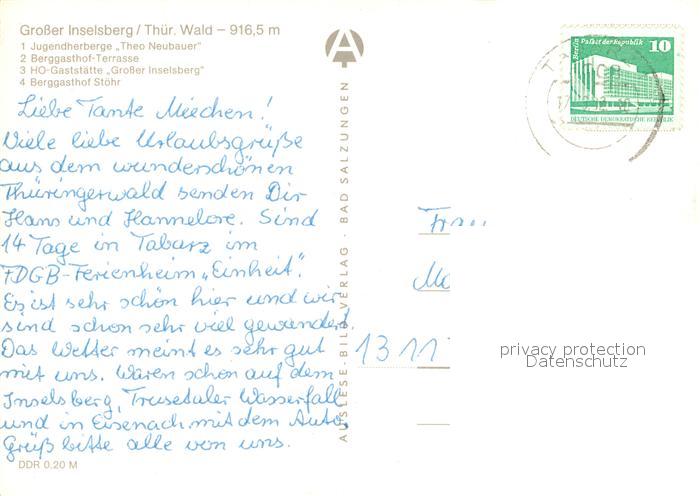 Großer Inselsberg / Thür. Wald – 916,5 m
1 Jugendherberge „Theo Neubauer"
2 Berggasthof-Terrasse
3 HO-Gaststätte „Großer Inselsberg"
4 Berggasthof Stöhr
Liebe Tante Miechen!
Viele liebe Urlaubsgrüße
aus dem wunderschönen
Thüringerwald senden Dir
Hans und Hannelore. Sind
14 Tage in Tabarz im
FDGB-Ferienheim „Einheit".
Es ist sehr schön hier und wir
sind schon sehr viel gewandert.
Das Wetter meint es sehr gut
mit uns. Waren schon auf dem
Inselsberg, Trusetaler Wasserfall
und in Eisenach mit dem Auto.
Grüß bitte alle von uns.
DDR 0,20 M
AUSLESE-BILD-VERLAG · BAD SALZUNGEN
Berlin Palast der Republik 10
DEUTSCHE DEMOKRATISCHE REPUBLIK
1311
privacy protection
Datenschutz